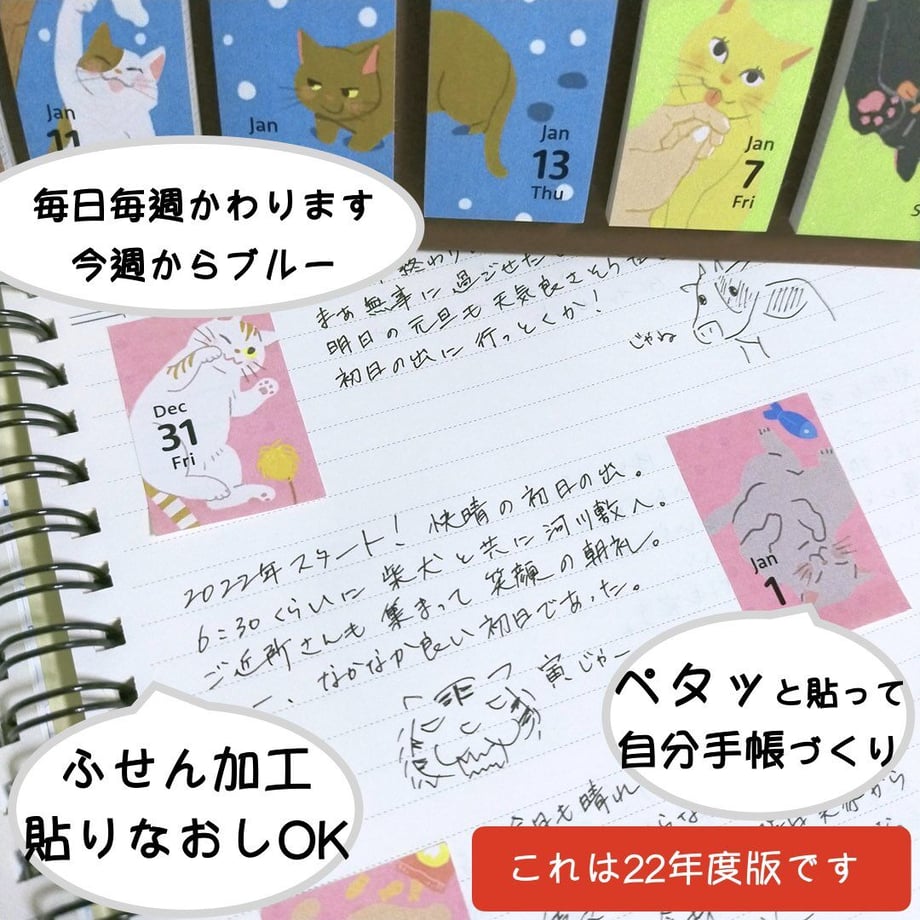 Jan
11
Jan
Jan
13
Thu
Jan
7
Fri
毎日毎週かわります
今週からブルー
まぁ無事に過ごせた
明日の元旦も天気良さそう
初日の出に行っとくか!
じゃね
Dec
31
Fri
2022年スタート! 快晴の初日の出。
6:30くらいに柴犬と共に河川敷へ。
ご近所さんも集まって笑顔の朝礼。
なかなか良い初日であった。
Jan
1
寅じゃー
ペタッと貼って
自分手帳づくり
ふせん加工
貼りなおしOK
今日も晴れ
これは22年度版です